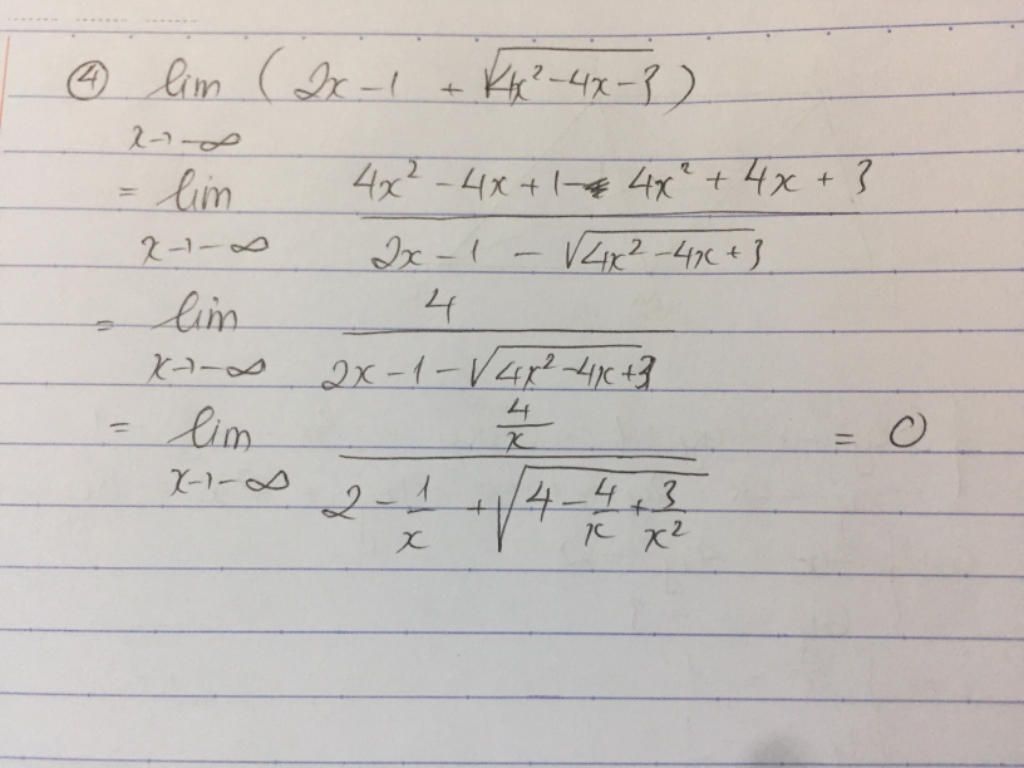 ④ lim ( 2x - 1 + √(4x² - 4x - 3) )
x → -∞
= lim (4x² - 4x + 1 - 4x² + 4x + 3) / (2x - 1 - √(4x² - 4x + 3))
x → -∞
= lim 4 / (2x - 1 - √(4x² - 4x + 3))
x → -∞
= lim (4/x) / (2 - 1/x + √(4 - 4/x + 3/x²)) = 0
x → -∞